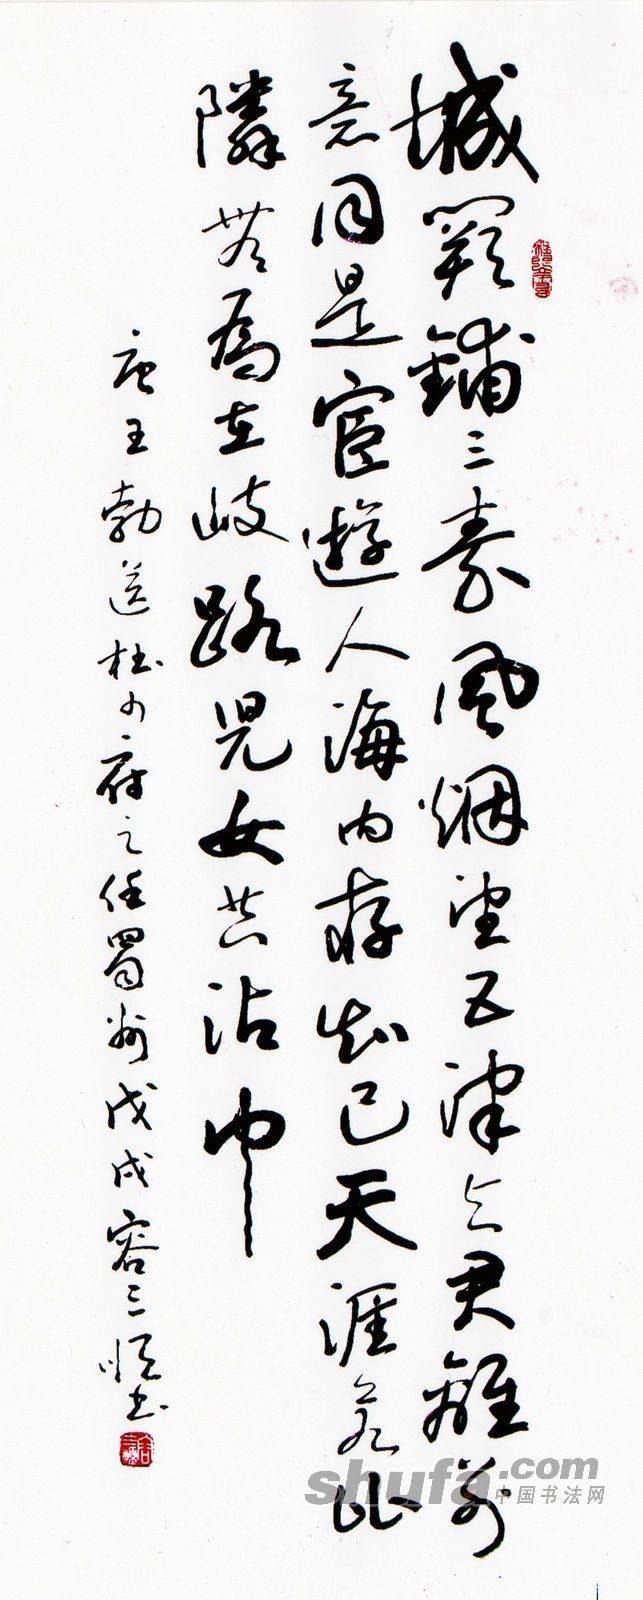 城闕鋪三秦風烟望五津与君離别
意同是宦遊人海内存知己天涯若比
隣無為在岐路児女共沾巾
唐王勃送杜少府之任蜀州戊戌容三书
shufa.com
中国书法网